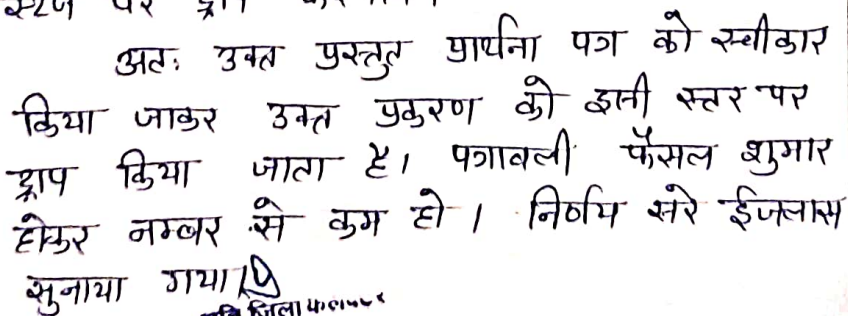 पर
अतः उक्त प्रस्तुत प्रार्थना पत्र को स्वीकार
किया जाकर उक्त प्रकरण को इसी स्तर पर
ड्राप किया जाता है। पत्रावली फैसल शुमार
होकर नम्बर से कम हो। निर्णय सरे ईजलास
सुनाया गया।
जिला